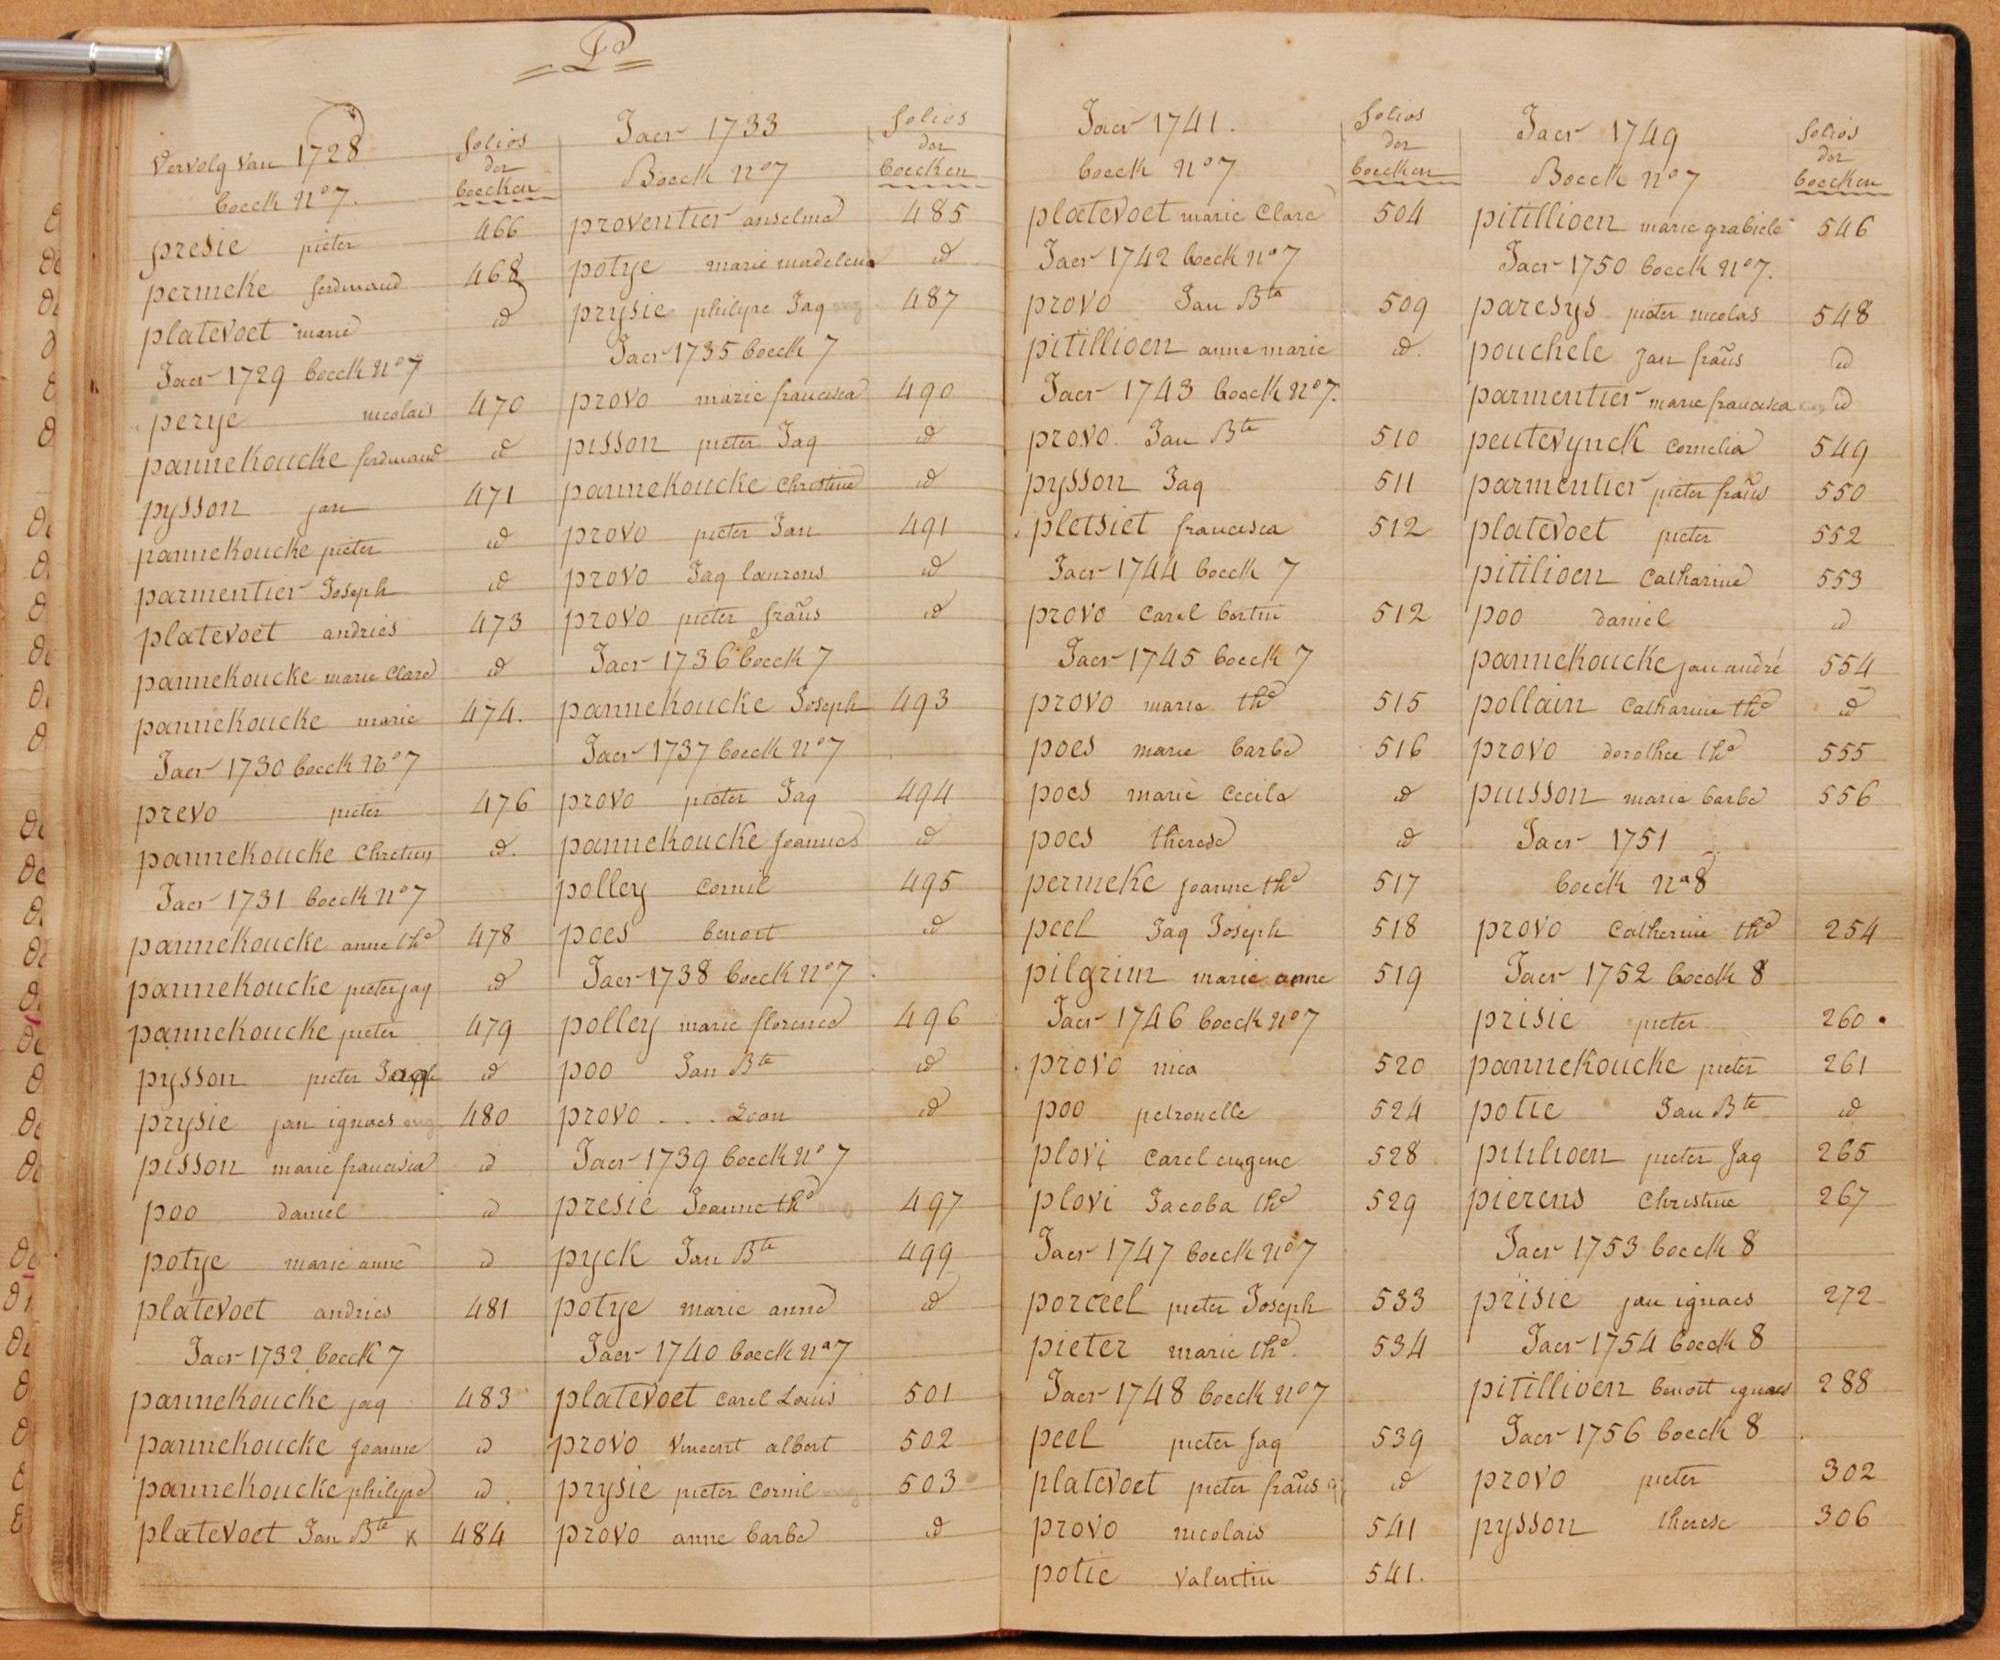 P
Vervolg van 1728
boeck N° 7.
folios
der
boecken
presie pieter 466
permeke ferdinand 468
platevoet marie id
Jaer 1729 boeck N° 7
perye nicolais 470
pannekoucke ferdinand id
pysson jan 471
pannekoucke pieter id
parmentier Joseph id
platevoet andries 473
pannekoucke marie Clare id
pannekoucke marie 474.
Jaer 1730 boeck N° 7
prevo pieter 476
pannekoucke Chretien id.
Jaer 1731 boeck N° 7
pannekoucke anne the 478
pannekoucke pieter jaq id
pannekoucke pieter 479
pysson pieter id
prysie jan ignaes 480
pisson marie francisca id
poo daniel id
potye marie anne id
platevoet andries 481
Jaer 1732 boeck 7
pannekoucke jaq 483
pannekoucke Joanne id
pannekoucke philipe id
platevoet Jan Bte x 484
Jaer 1733
Boeck N° 7
folios
der
boecken
proventier anselme 485
potye marie madelena id
prysie philipe Jaq 487
Jaer 1735 boeck 7
provo marie francisca 490
pisson pieter Jaq id
pannekoucke Christine id
provo pieter Jan 491
provo Jaq laurens id
provo pieter frañs id
Jaer 1736 boeck 7
pannekoucke Joseph 493
Jaer 1737 boeck N° 7
provo pieter Jaq 494
pannekoucke Joannes id
polley Cornil 495
poes benoit id
Jaer 1738 boeck N° 7
polley marie florence 496
poo Jan Bte id
provo . . . Leon id
Jaer 1739 boeck N° 7
presie Joanne the 497
pyck Jan Bte 499
potye marie anne id
Jaer 1740 boeck Na 7
platevoet Carel Louis 501
provo Vincent albert 502
prysie pieter Cornil 503
provo anne barbe id
Jaer 1741.
boeck N° 7
folios
der
boecken
platevoet marie Clare 504
Jaer 1742 boeck N° 7
provo Jan Bte 509
pitillioen anne marie id.
Jaer 1743 boeck N° 7.
provo Jan Bte 510
pysson Jaq 511
pletsiet francisca 512
Jaer 1744 boeck 7
provo Carel bertin 512
Jaer 1745 boeck 7
provo marie the 515
poes marie barbe 516
poes marie Cecile id
poes therese id
permeke Joanne the 517
peel Jaq Joseph 518
pilgrim marie anne 519
Jaer 1746 boeck N° 7
provo nica 520
poo petronelle 524
plovi Carel eugene 528
plovi Jacoba the 529
Jaer 1747 boeck N° 7
porceel pieter Joseph 533
pieter marie the. 534
Jaer 1748 boeck N° 7
peel pieter Jaq 539
platevoet pieter frañs id
provo nicolais 541
potie Valentin 541.
Jaer 1749
Boeck N° 7
folios
der
boecken
pitillioen marie grabiele 546
Jaer 1750 boeck N° 7.
paresys pieter nicolas 548
pouchele Jan frañs id
parmentier marie francisca id
peutevynck Cornelia 549
parmentier pieter frañs 550
platevoet pieter 552
pitilioen Catharine 553
poo daniel id
pannekoucke jan andré 554
pollain Catharine the id
provo dorothee the 555
puisson marie barbe 556
Jaer 1751
boeck Na 8
provo Catherine the 254
Jaer 1752 boeck 8
prisie pieter 260
pannekoucke pieter 261
potie Jan Bte id
pitilioen pieter Jaq 265
pierens Christine 267
Jaer 1753 boeck 8
prisie jan ignaes 272
Jaer 1754 boeck 8
pitillioen benoit ignaes 288
Jaer 1756 boeck 8
provo pieter 302
pysson therese 306